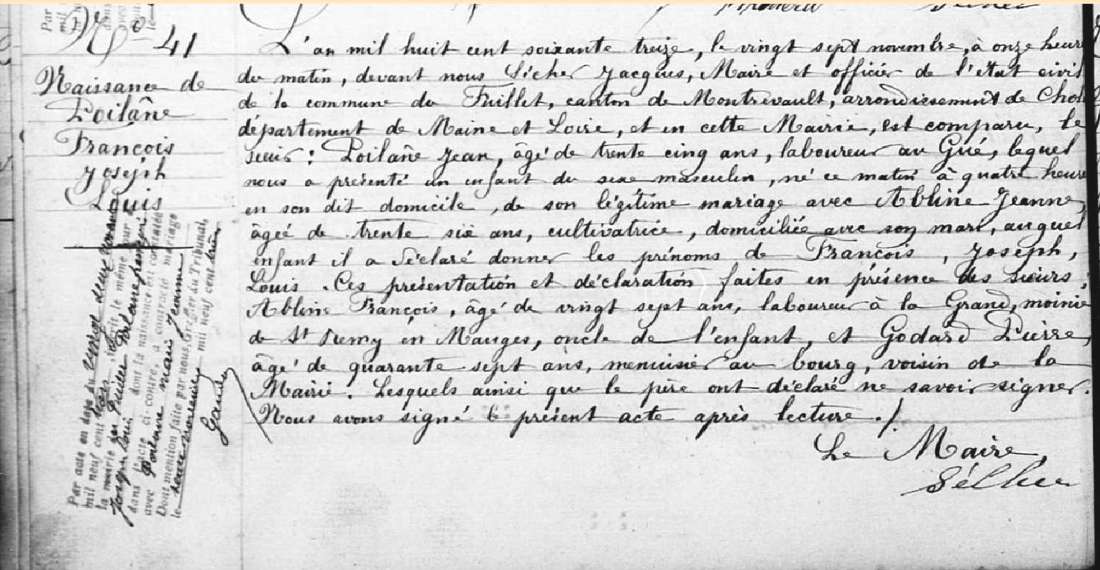 N° 41
Naissance de
Poilâne
François
Joseph
Louis
L'an mil huit cent soixante treize, le vingt sept novembre, à onze heure
du matin, devant nous Sécher Jacques, Maire et officier de l'état civil
de la commune du Fuillet, canton de Montrevault, arrondissement de Chol
département de Maine et Loire, et en cette Mairie, est comparu, le
sieur : Poilâne Jean, âgé de trente cinq ans, laboureur au Gué, lequel
nous a présenté un enfant du sexe masculin, né ce matin à quatre heure
en son dit domicile, de son légitime mariage avec Abline Jeanne,
âgée de trente six ans, cultivatrice, domiciliée avec son mari, auquel
enfant il a déclaré donner les prénoms de François, Joseph,
Louis. Ces présentation et déclaration faites en présence des sieurs :
Abline François, âgé de vingt sept ans, laboureur à la Grand, moinie
de St Remy en Mauges, oncle de l'enfant, et Godard Pierre,
âgé de quarante sept ans, menuisier au bourg, voisin de la
Mairie. Lesquels ainsi que le père ont déclaré ne savoir signer.
Nous avons signé le présent acte après lecture ./
Le Maire,
Sécher
Par acte en date du vingt deux
mil neuf cent
la mairie
dans l'acte ci-contre, a contracté mariage
avec Poilane marie Jeanne
Dont mention faite par nous, Greffier du Tribunal,
le mil neuf cent